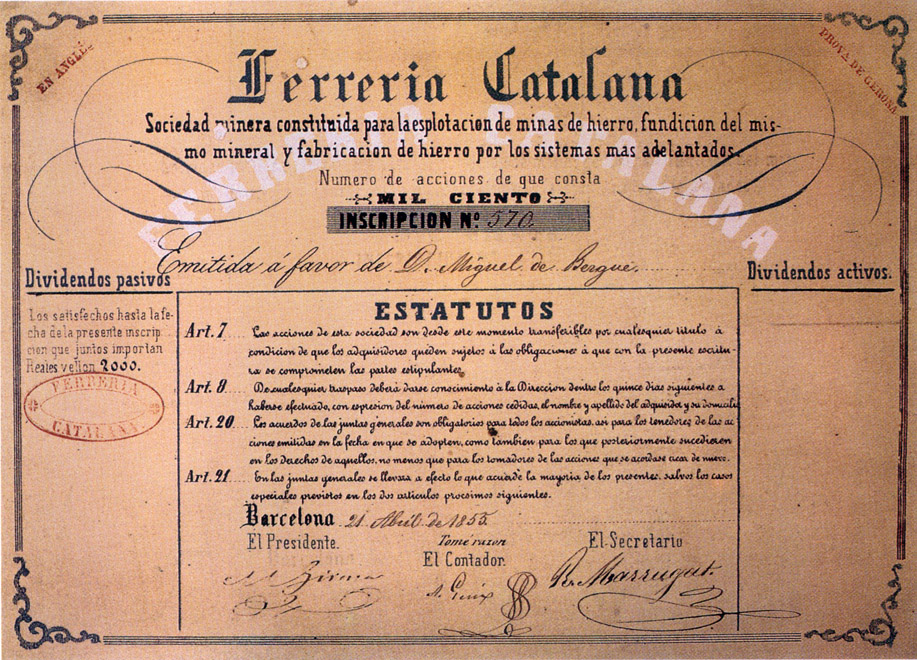 EN ANGLÉS
PROVA DE GERONA
Ferreria Catalana
Sociedad minera constituida para la esplotacion de minas de hierro, fundicion del mis-
mo mineral y fabricacion de hierro por los sistemas mas adelantados.
FERRERIA CATALANA
Numero de acciones de que consta
MIL CIENTO
INSCRIPCION Nº 570
Emitida á favor de D. Miguel de Bergue.
Dividendos pasivos
Dividendos activos.
Los satisfechos hasta la fe-
cha de la presente inscrip-
cion que juntos importan
Reales vellon 2000.
FERRERIA
CATALANA
ESTATUTOS
Art. 7 Las acciones de esta sociedad son desde este momento transferibles por cualesquier titulo á
condicion de que los adquisidores queden sujetos á las obligaciones á que con la presente escritu-
ra se comprometen las partes estipulantes.
Art. 9 De cualesquier traspaso deberá darse conocimiento à la Direccion dentro los quince dias siguientes a
haberse efectuado, con espresion del número de acciones cedidas, el nombre y apellido del adquisidor y su domicilio
Art. 20 Los acuerdos de las juntas generales son obligatorios para todos los accionistas, asi para los tenedores de las ac
ciones emitidas en la fecha en que se adopten, como tambien para los que posteriormente sucedieren
en los derechos de aquellos, no menos que para los tomadores de las acciones que se acordase crear de nuevo.
Art. 21 En las juntas generales se llevara a efecto lo que acuerde la mayoria de los presentes, salvos los casos
especiales previstos en los dos articulos procsimos siguientes.
Barcelona 21 Abril de 1855.
El Presidente.
Tomé razon
El Contador.
El Secretario
Marrugat.